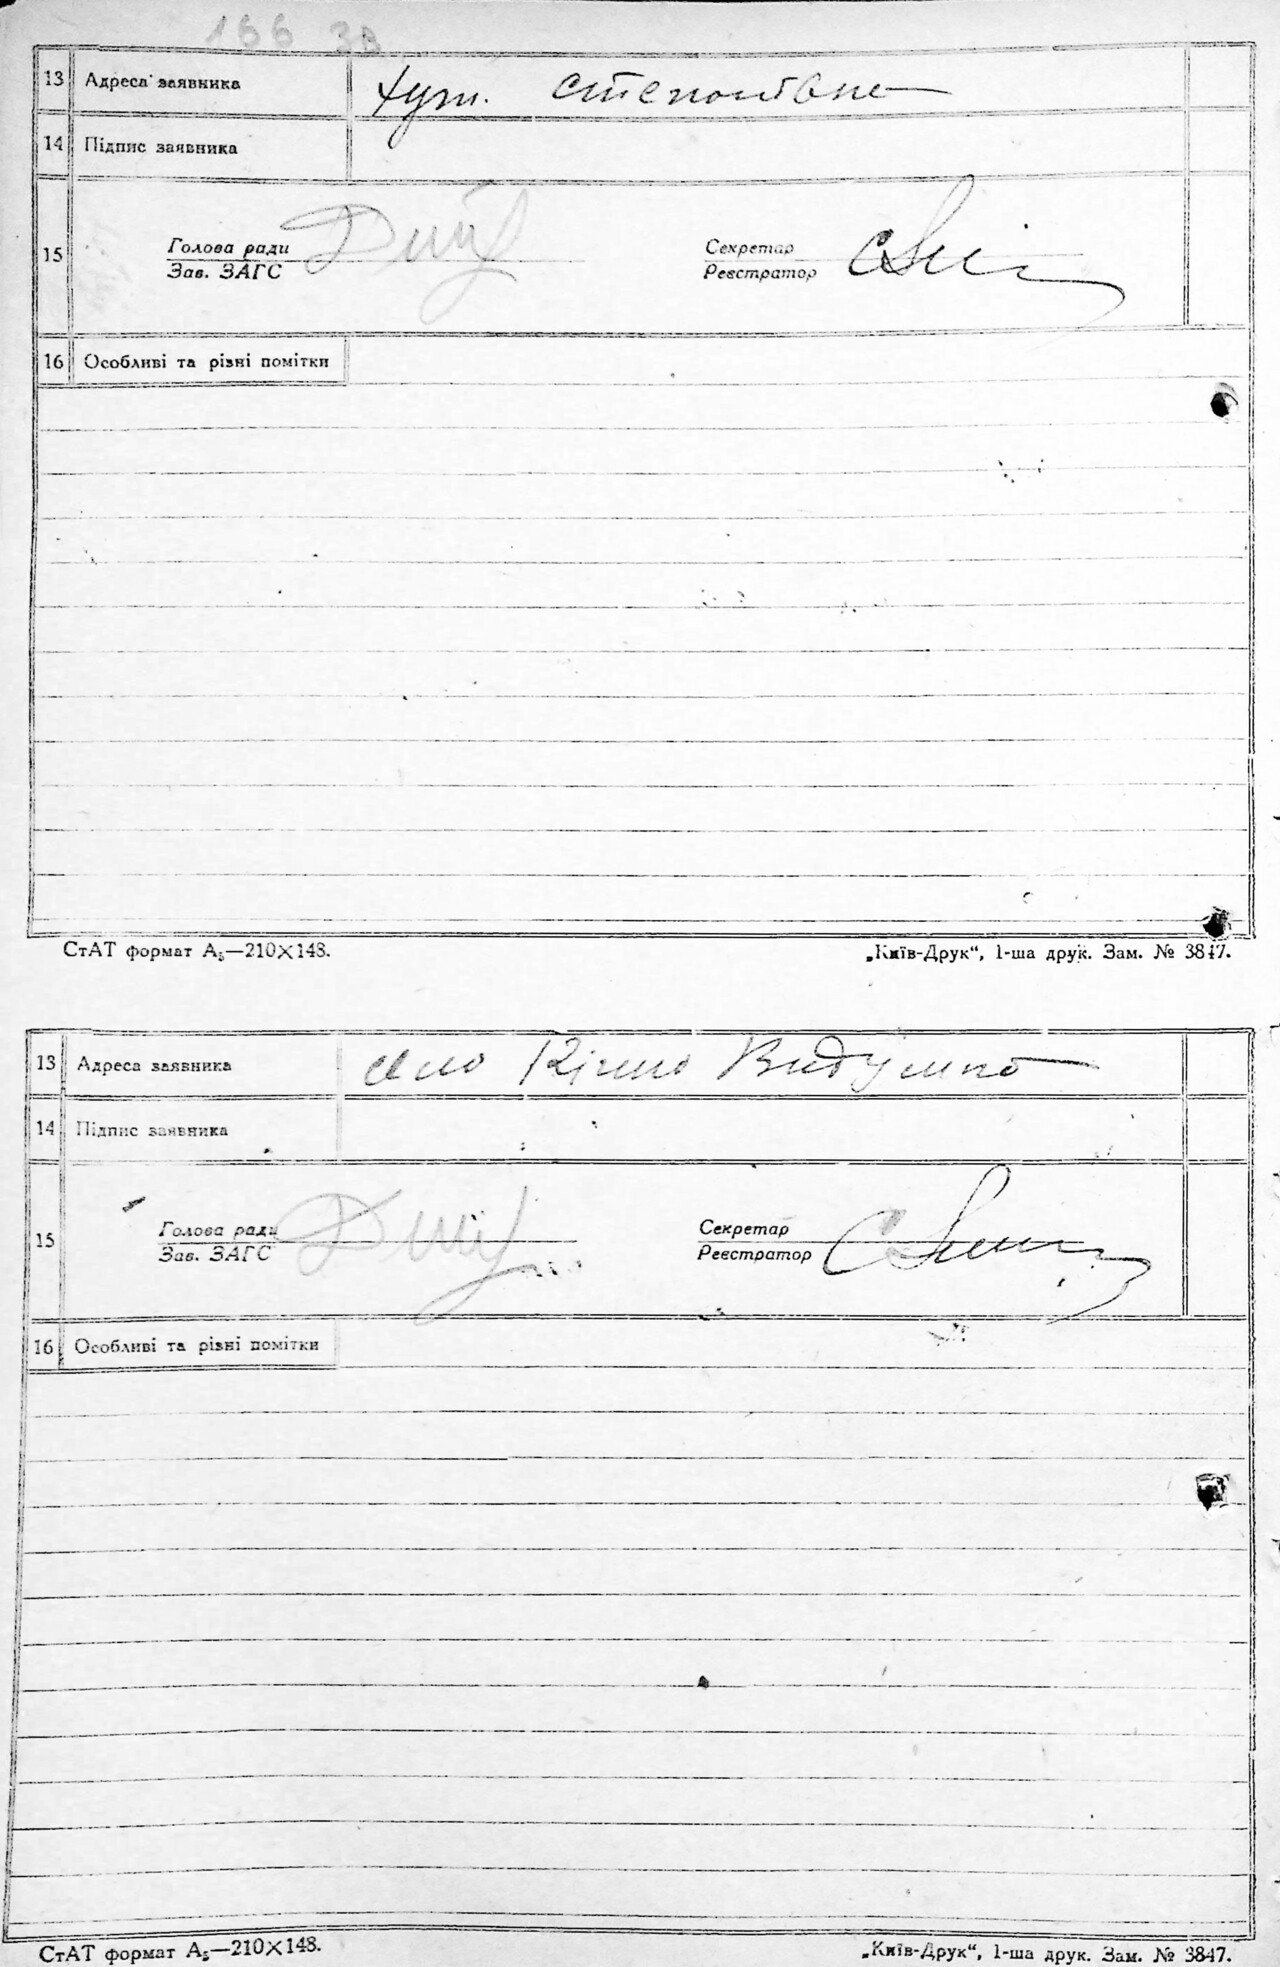 166 зв
13 Адреса заявника хут. Степовівка
14 Підпис заявника
15 Голова ради Секретар
Зав. ЗАГС Реєстратор
16 Особливі та різні помітки
СтАТ формат А₅—210×148. „Київ-Друк“, 1-ша друк. Зам. № 3847.
13 Адреса заявника село
14 Підпис заявника
15 Голова ради Секретар
Зав. ЗАГС Реєстратор
16 Особливі та різні помітки
СтАТ формат А₅—210×148. „Київ-Друк“, 1-ша друк. Зам. № 3847.